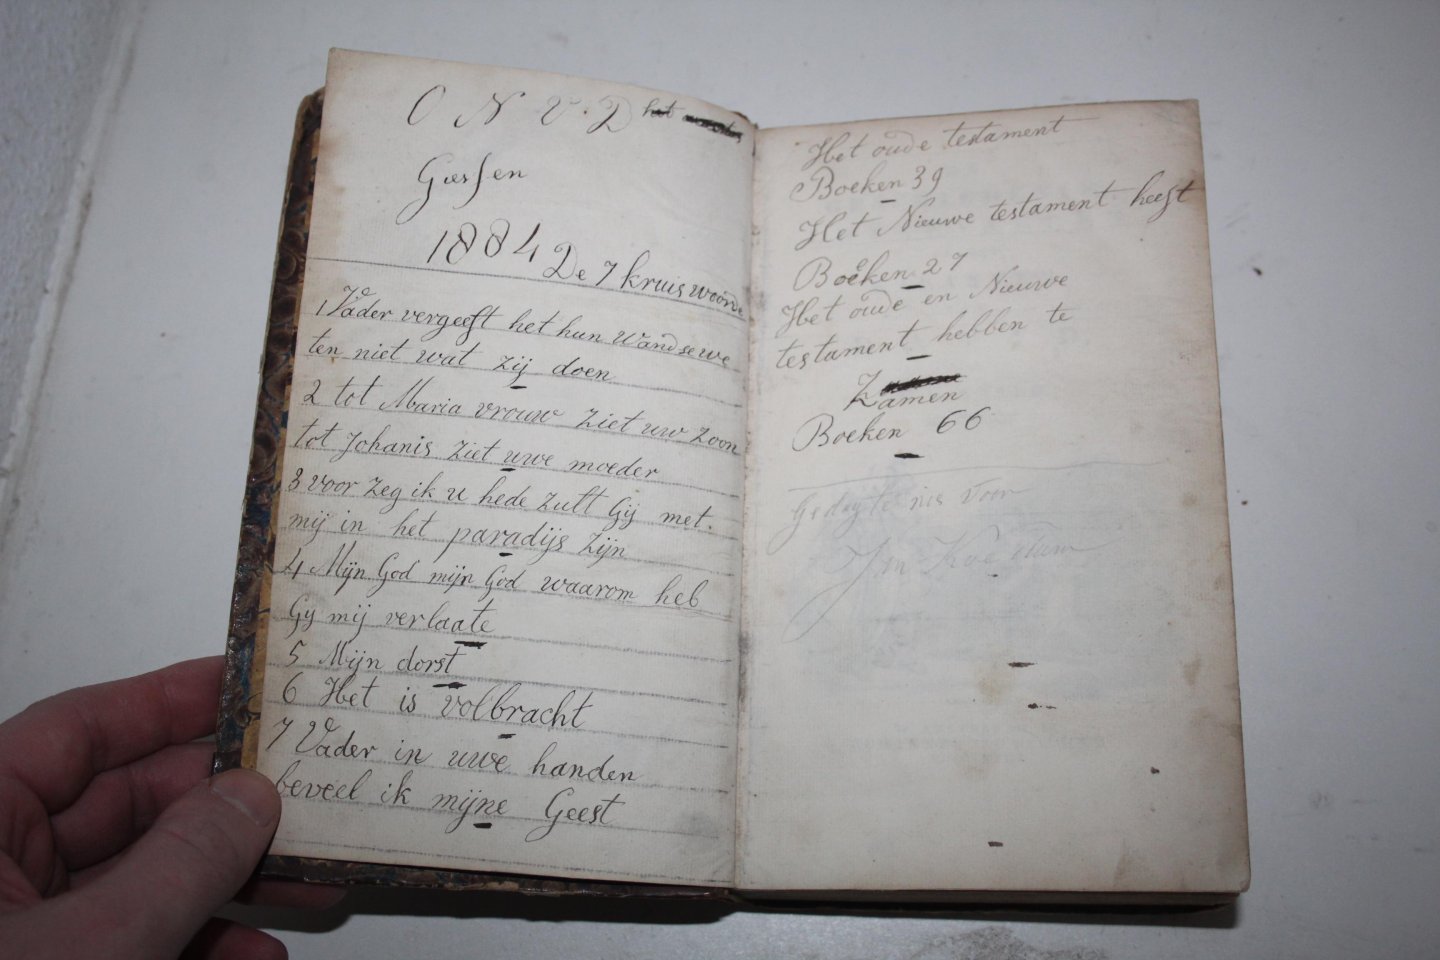 O N V D het
Goessen
1884 De 7 kruis woorde
1 Vader vergeeft het hun Wand se we
ten niet wat zij doen
2 tot Maria vrouw ziet uw zoon
tot Johanis ziet uwe moeder
3 voor zeg ik u hede zult Gij met
mij in het paradijs zijn
4 Mijn God mijn God waarom heb
Gy mij verlaate
5 Mijn dorst
6 Het is volbracht
7 Vader in uwe handen
beveel ik mijne Geest
Het oude testament
Boeken 39
Het Nieuwe testament heeft
Boeken 27
Het oude en Nieuwe
testament hebben te
Zamen
Boeken 66
Gedagte nis voor
Jan